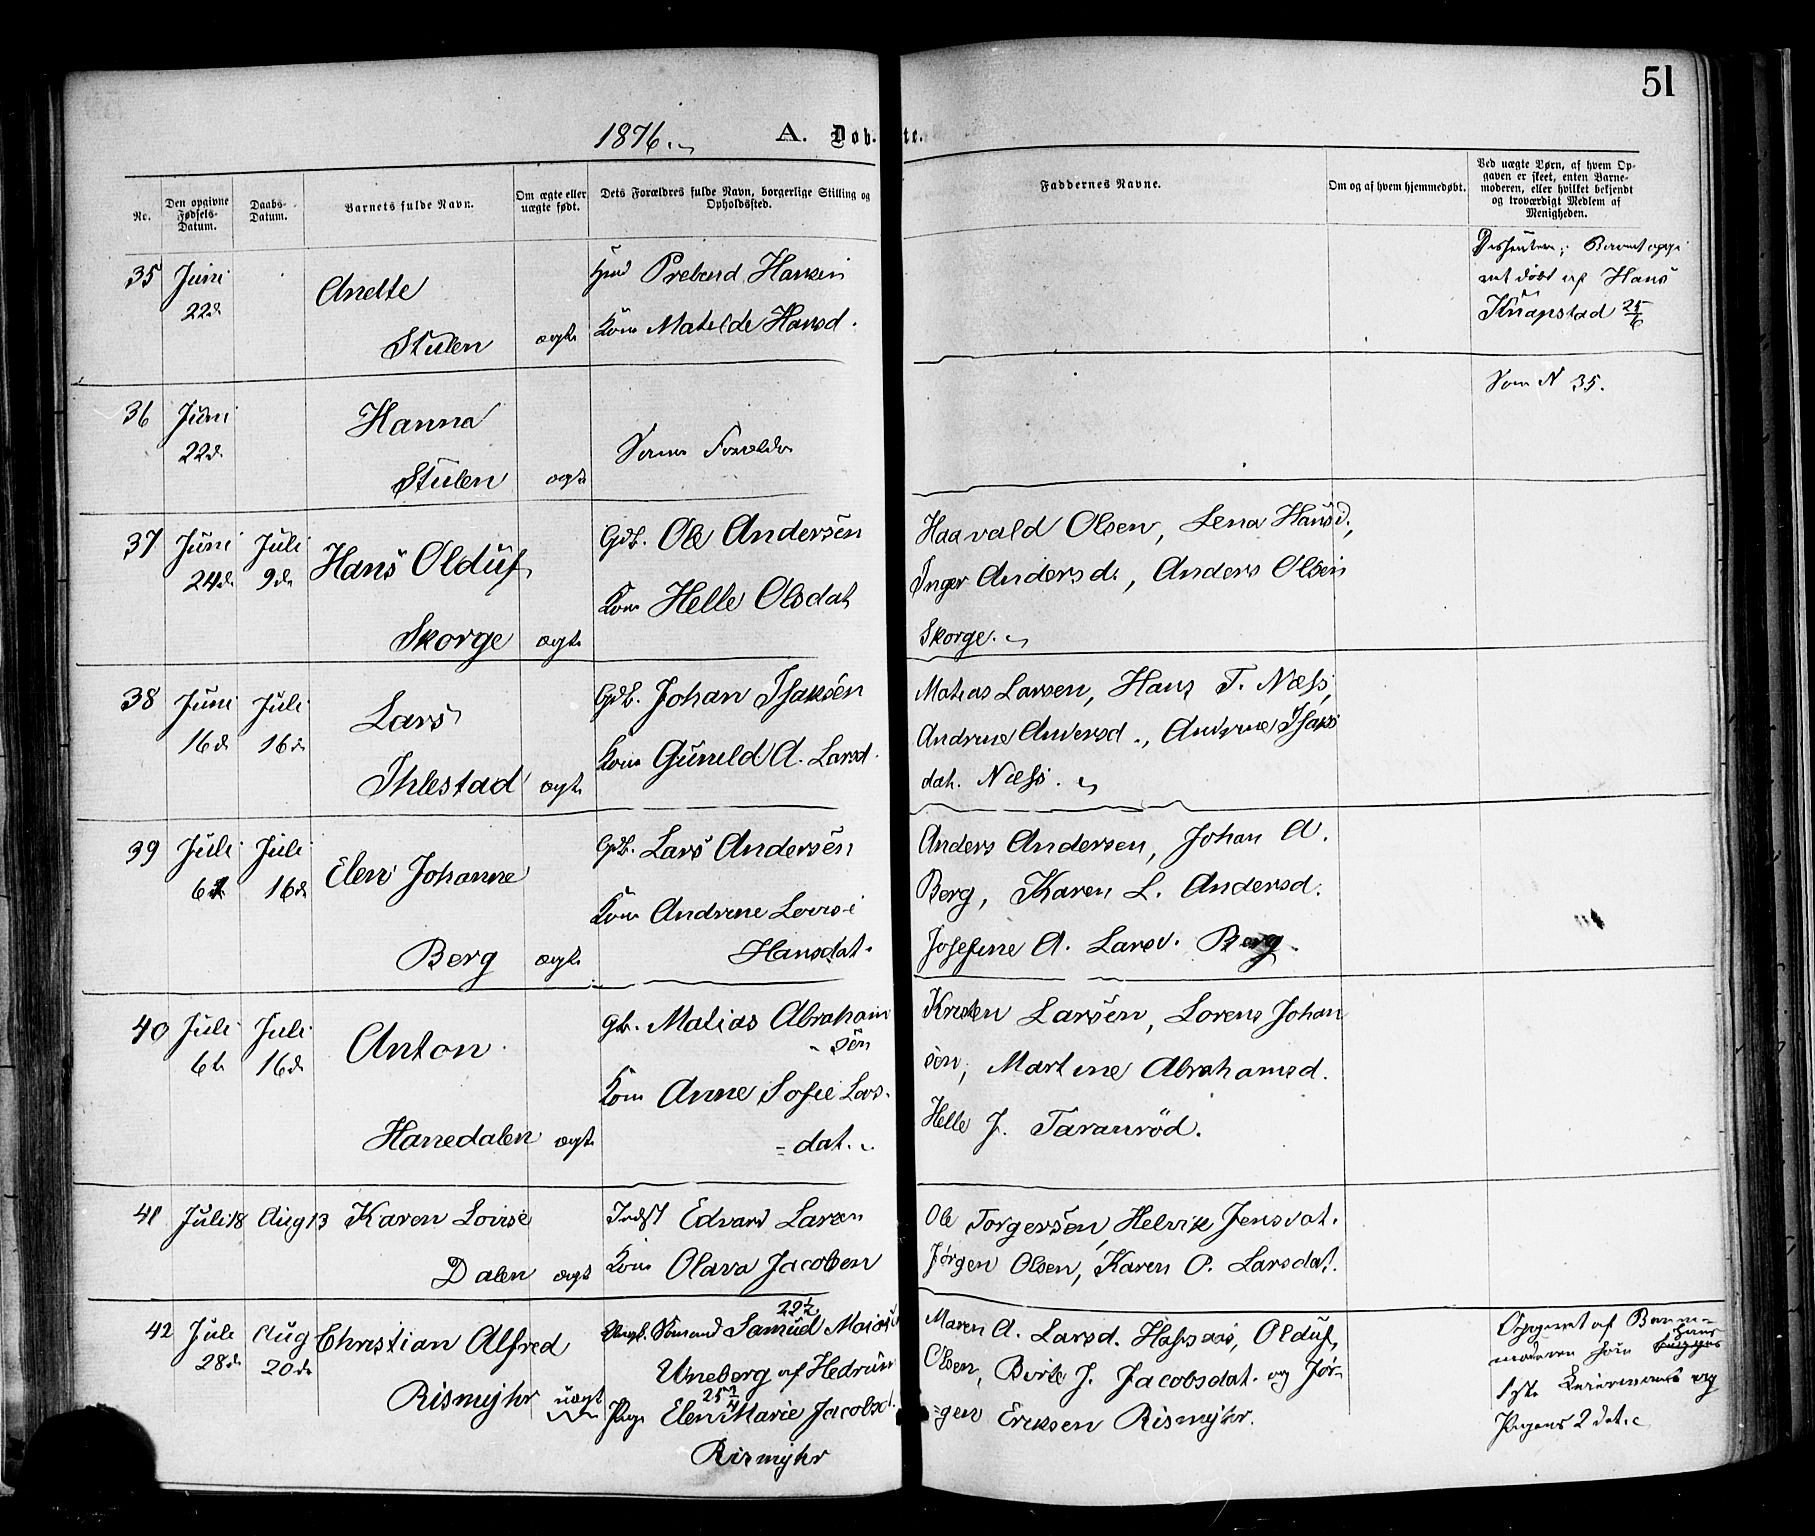 51
1876.
A. Døb-te.
No.
Den opgivne Fødsels-Datum.
Daabs-Datum.
Barnets fulde Navn.
Om ægte eller uægte født.
Dets Forældres fulde Navn, borgerlige Stilling og Opholdssted.
Faddernes Navne.
Om og af hvem hjemmedøbt.
Ved uægte Børn, af hvem Opgaven er skeet, enten Barnemoderen, eller hvilket bekjendt og troværdigt Medlem af Menigheden.
35 Juni
22d
Anette
Stulen ægte
Prebend Hansen
Kone Matelde Hansd.
Dissenter; Barnet oppi
vet døbt af Hans
Knapstad 25/6
36 Juni
22d
Hanna
Stulen ægte
Samme Forældre
Som N 35.
37 Juni Juli
24d 9d
Hans Olduf
Skorge ægte
Gdb. Ole Andersen
Kone Helle Olsdat
Haavald Olsen, Lena Hansd.,
Inger Andersd., Anders Olsen
Skorge.
38 Juni Juli
16d 16d
Lars
Ihlestad ægte
Gdb. Johan Isaksen
Kone Gunild A. Larsd.
Matias Larsen, Hans T. Næss,
Andrine Andersd., Andrine Isaks
dat. Næss.
39 Juli Juli
6d 16d
Elen Johanne
Berg ægte
Gdb. Lars Andersen
Kone Andrine Lovise
Hansdat.
Anders Andersen, Johan A.
Berg, Karen L. Andersd.
Josefine A. Larsd. Berg.
40 Juli Juli
6t 16d
Anton
Hanedalen ægte
Gb. Matias Abraham
sen
Kone Anne Sofie Lars-
=dat.
Kresten Larsen, Lorens Johan
sen, Martine Abrahamsd.
Helle J. Taranrød.
41 Juli 18 Aug 13 Karen Lovise
Dalen ægte
Indst Edvard Larsen
Kone Olava Jacobsen
Ole Torgersen, Helvik Jensdat.
Jørgen Olsen, Karen O. Larsdat.
42 Juli Aug
28d 20d
Christian Alfred
Rismyhr uægte
22½
Ungk. Sømand Samuel
Uneberg af Hedrum
25¼
Pige Elen Marie Jacobsd.
Rismyhr
Maren A. Larsd. Hassaas, Olduf
Olsen, Berte J. Jacobsdat. og Jør-
=gen Eriksen Rismyhr.
Opgivet af Barne-
moderen
hans
1ste Leiermaal og
Pigens 2det.